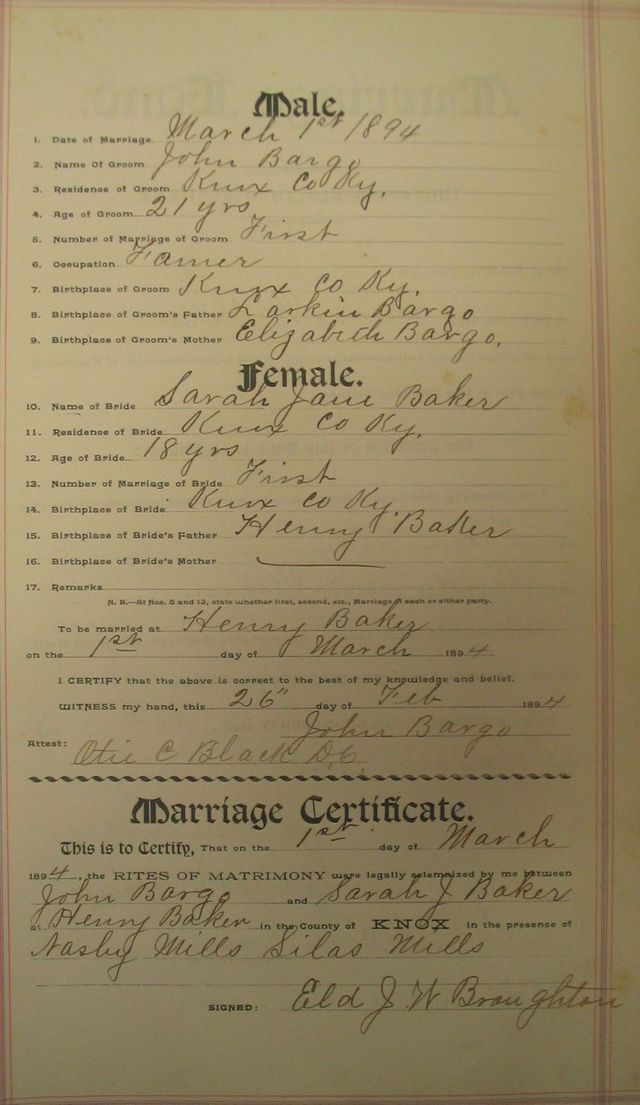 Male.
1. Date of Marriage March 1st 1894
2. Name Of Groom John Bargo
3. Residence of Groom Knox Co Ky.
4. Age of Groom 21 yrs
5. Number of Marriage of Groom First
6. Occupation Famer
7. Birthplace of Groom Knox Co Ky.
8. Birthplace of Groom's Father Larkin Bargo
9. Birthplace of Groom's Mother Elizabeth Bargo.
Female.
10. Name of Bride Sarah Jane Baker
11. Residence of Bride Knox Co Ky.
12. Age of Bride 18 yrs
13. Number of Marriage of Bride First
14. Birthplace of Bride Knox Co Ky.
15. Birthplace of Bride's Father Henry Baker
16. Birthplace of Bride's Mother
17. Remarks
N. B.—At Nos. 5 and 13, state whether first, second, etc., Marriage of each or either party.
To be married at Henry Baker
on the 1st day of March 1894
I CERTIFY that the above is correct to the best of my knowledge and belief.
WITNESS my hand, this 26" day of Feb 1894
John Bargo
Attest: Otie C Black D.C.
Marriage Certificate.
This is to Certify, That on the 1st day of March
1894, the RITES OF MATRIMONY were legally solemnized by me between
John Bargo and Sarah J Baker
at Henry Baker in the County of KNOX in the presence of
Nasby Mills Silas Mills
SIGNED: Eld J. W Broughton